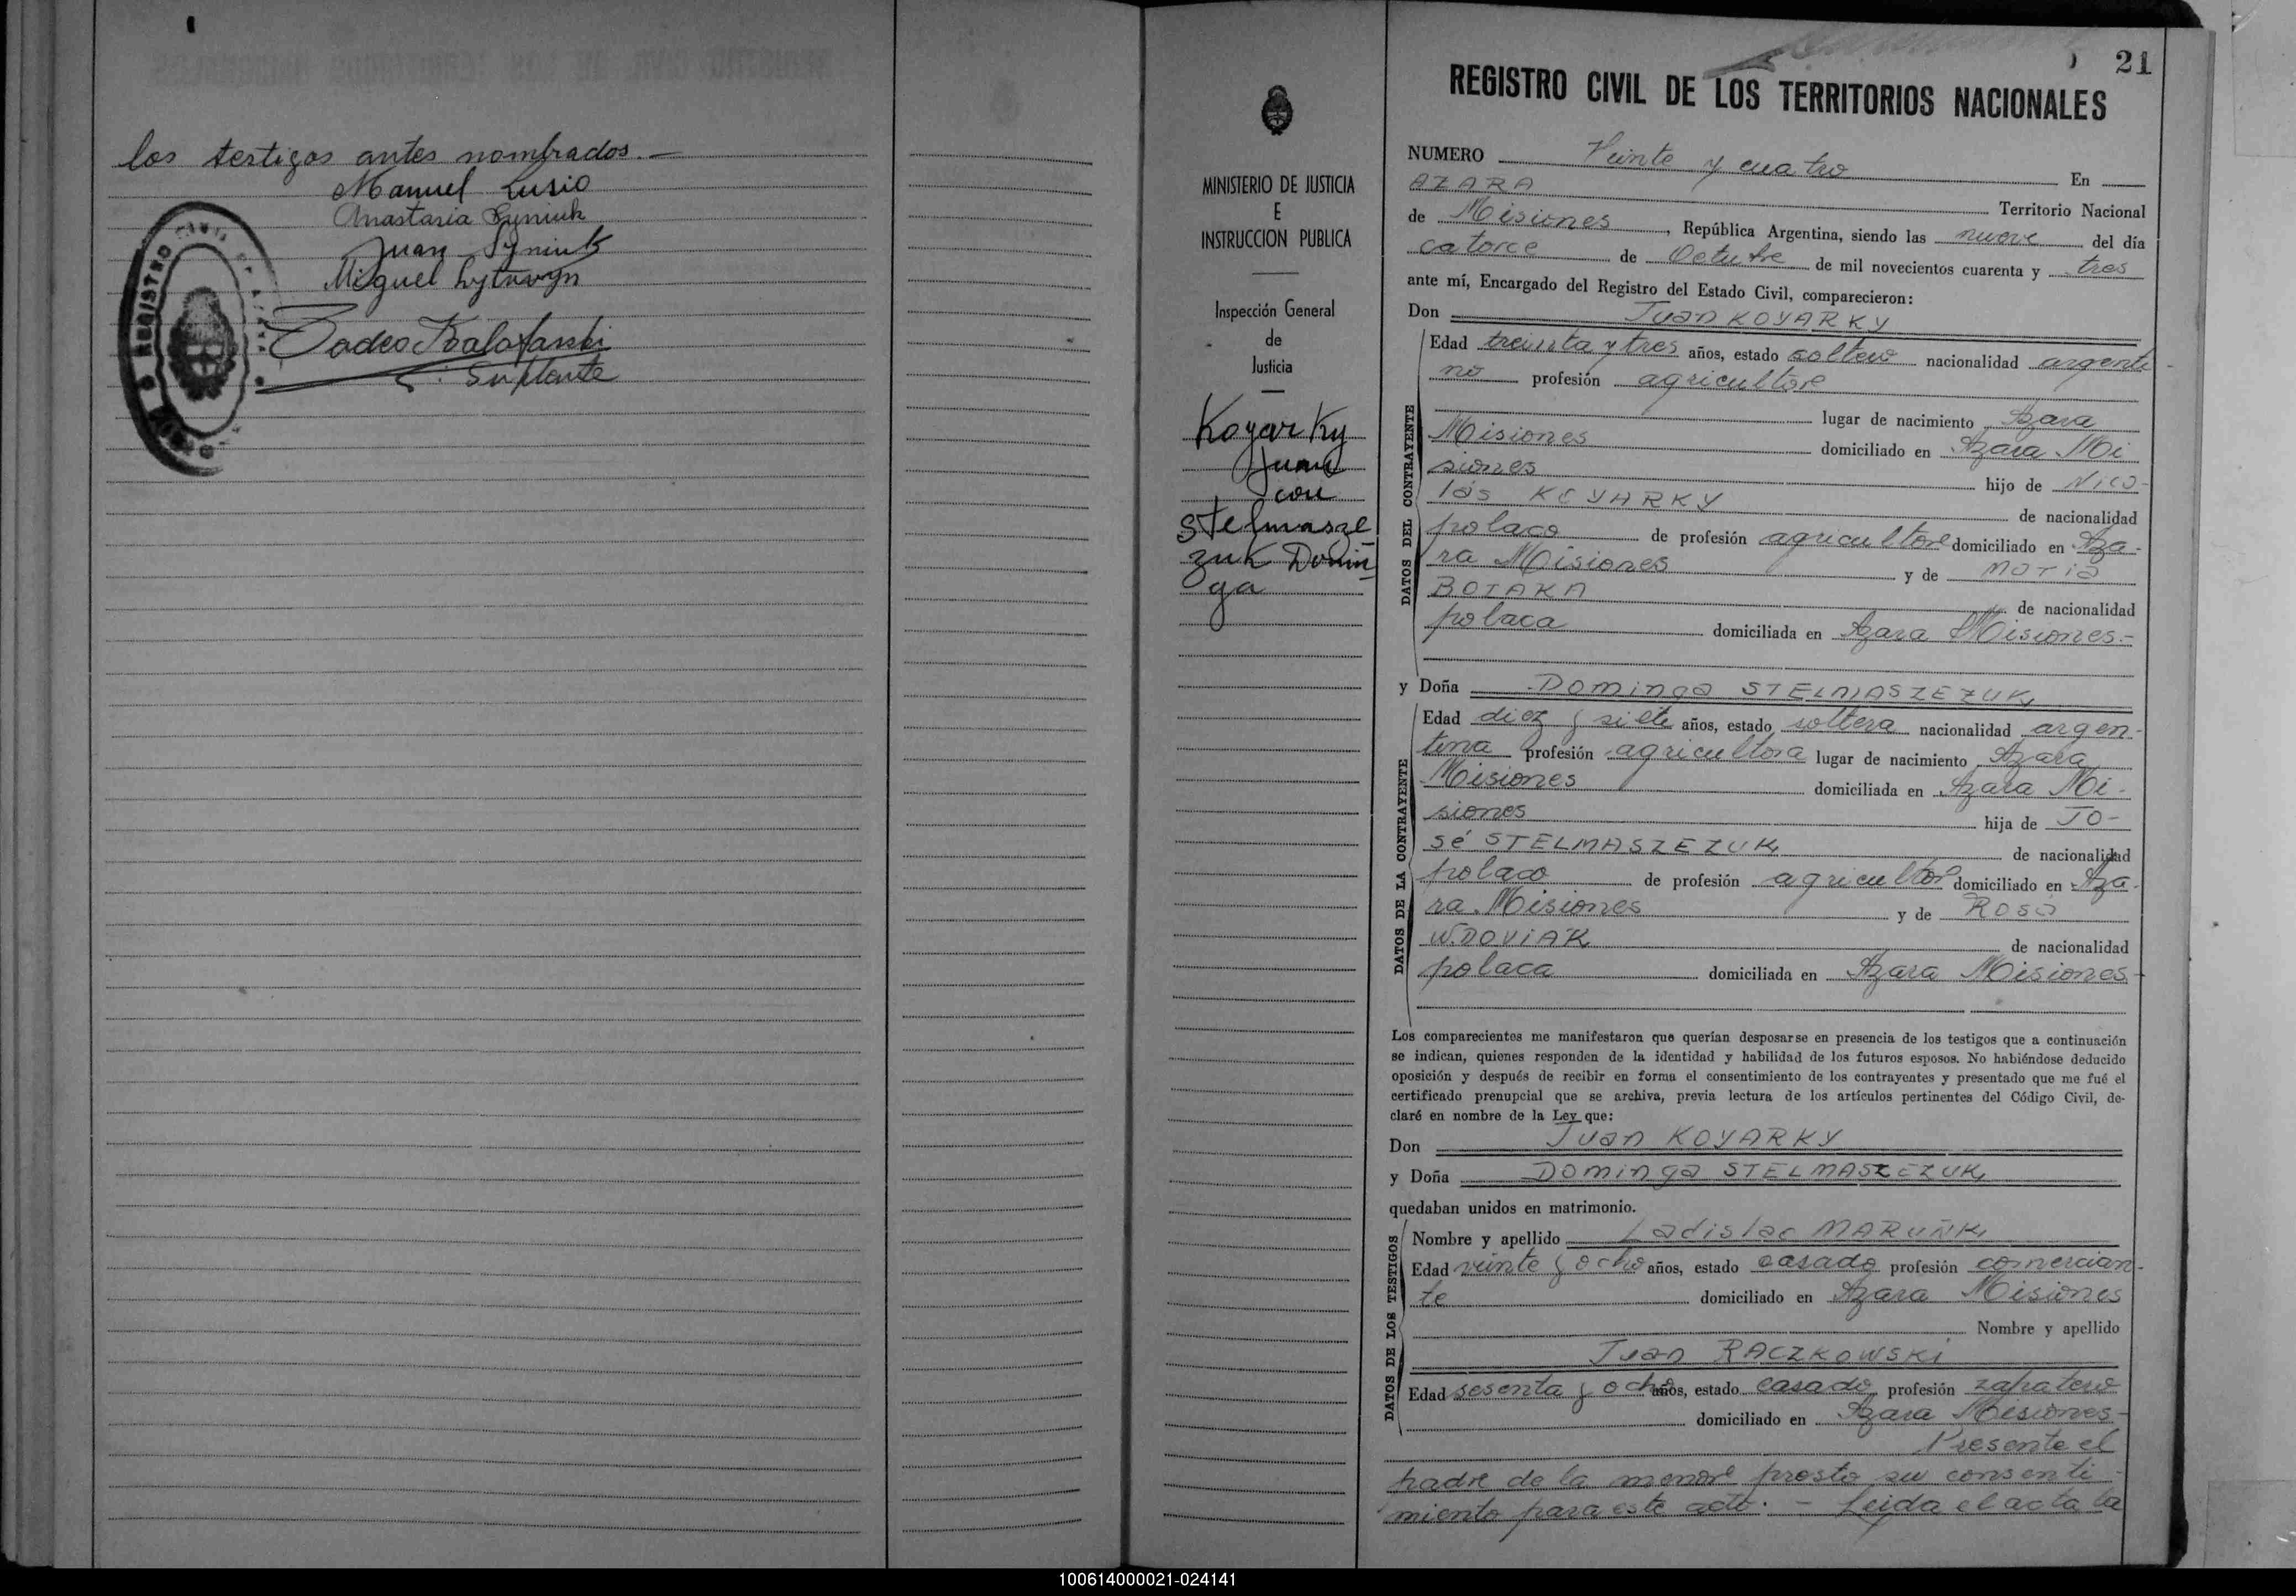 los testigos antes nombrados.—
Manuel Lusio
Anastasia Syniuk
Juan Syniuk
Miguel Lytwyn
Tadeo
Suplente
REGISTRO
21
REGISTRO CIVIL DE LOS TERRITORIOS NACIONALES
MINISTERIO DE JUSTICIA
E
INSTRUCCION PUBLICA
Inspección General
de
Justicia
Koyarky
Juan
con
Stelmasze
zuk Domin
ga
NUMERO Veinte y cuatro En
AZARA Territorio Nacional
de Misiones, República Argentina, siendo las nueve del día
catorce de Octubre de mil novecientos cuarenta y tres
ante mí, Encargado del Registro del Estado Civil, comparecieron:
Don Juan KOYARKY
DATOS DEL CONTRAYENTE
Edad treinta y tres años, estado soltero nacionalidad argenti-
no profesión agricultor
lugar de nacimiento Azara
Misiones domiciliado en Azara Mi
siones hijo de Nico-
lás KOYARKY de nacionalidad
polaco de profesión agricultor domiciliado en Aza-
ra Misiones y de Maria
BOIAKA de nacionalidad
polaca domiciliada en Azara Misiones.-
y Doña Dominga STELMASZEZUK
DATOS DE LA CONTRAYENTE
Edad diez y siete años, estado soltera nacionalidad argen-
tina profesión agricultora lugar de nacimiento Azara
Misiones domiciliada en Azara Mi-
siones hija de JO-
sé STELMASZEZUK de nacionalidad
polaco de profesión agricultor domiciliado en Aza-
ra Misiones y de Rosa
WDOVIAK de nacionalidad
polaca domiciliada en Azara Misiones-
Los comparecientes me manifestaron que querían desposarse en presencia de los testigos que a continuación
se indican, quienes responden de la identidad y habilidad de los futuros esposos. No habiéndose deducido
oposición y después de recibir en forma el consentimiento de los contrayentes y presentado que me fué el
certificado prenupcial que se archiva, previa lectura de los artículos pertinentes del Código Civil, de-
claré en nombre de la Ley que:
Don Juan KOYARKY
y Doña Dominga STELMASZEZUK
quedaban unidos en matrimonio.
DATOS DE LOS TESTIGOS
Nombre y apellido Ladislao MARUÑK
Edad veinte y ocho años, estado casado profesión comercian-
te domiciliado en Azara Misiones
Nombre y apellido
Juan RACZKOWSKi
Edad sesenta y ocho años, estado casado profesión zapatero
domiciliado en Azara Misiones-
Presente el
padre de la menor presto su consenti-
miento para este acto. - Leida el acta la
100614000021-024141